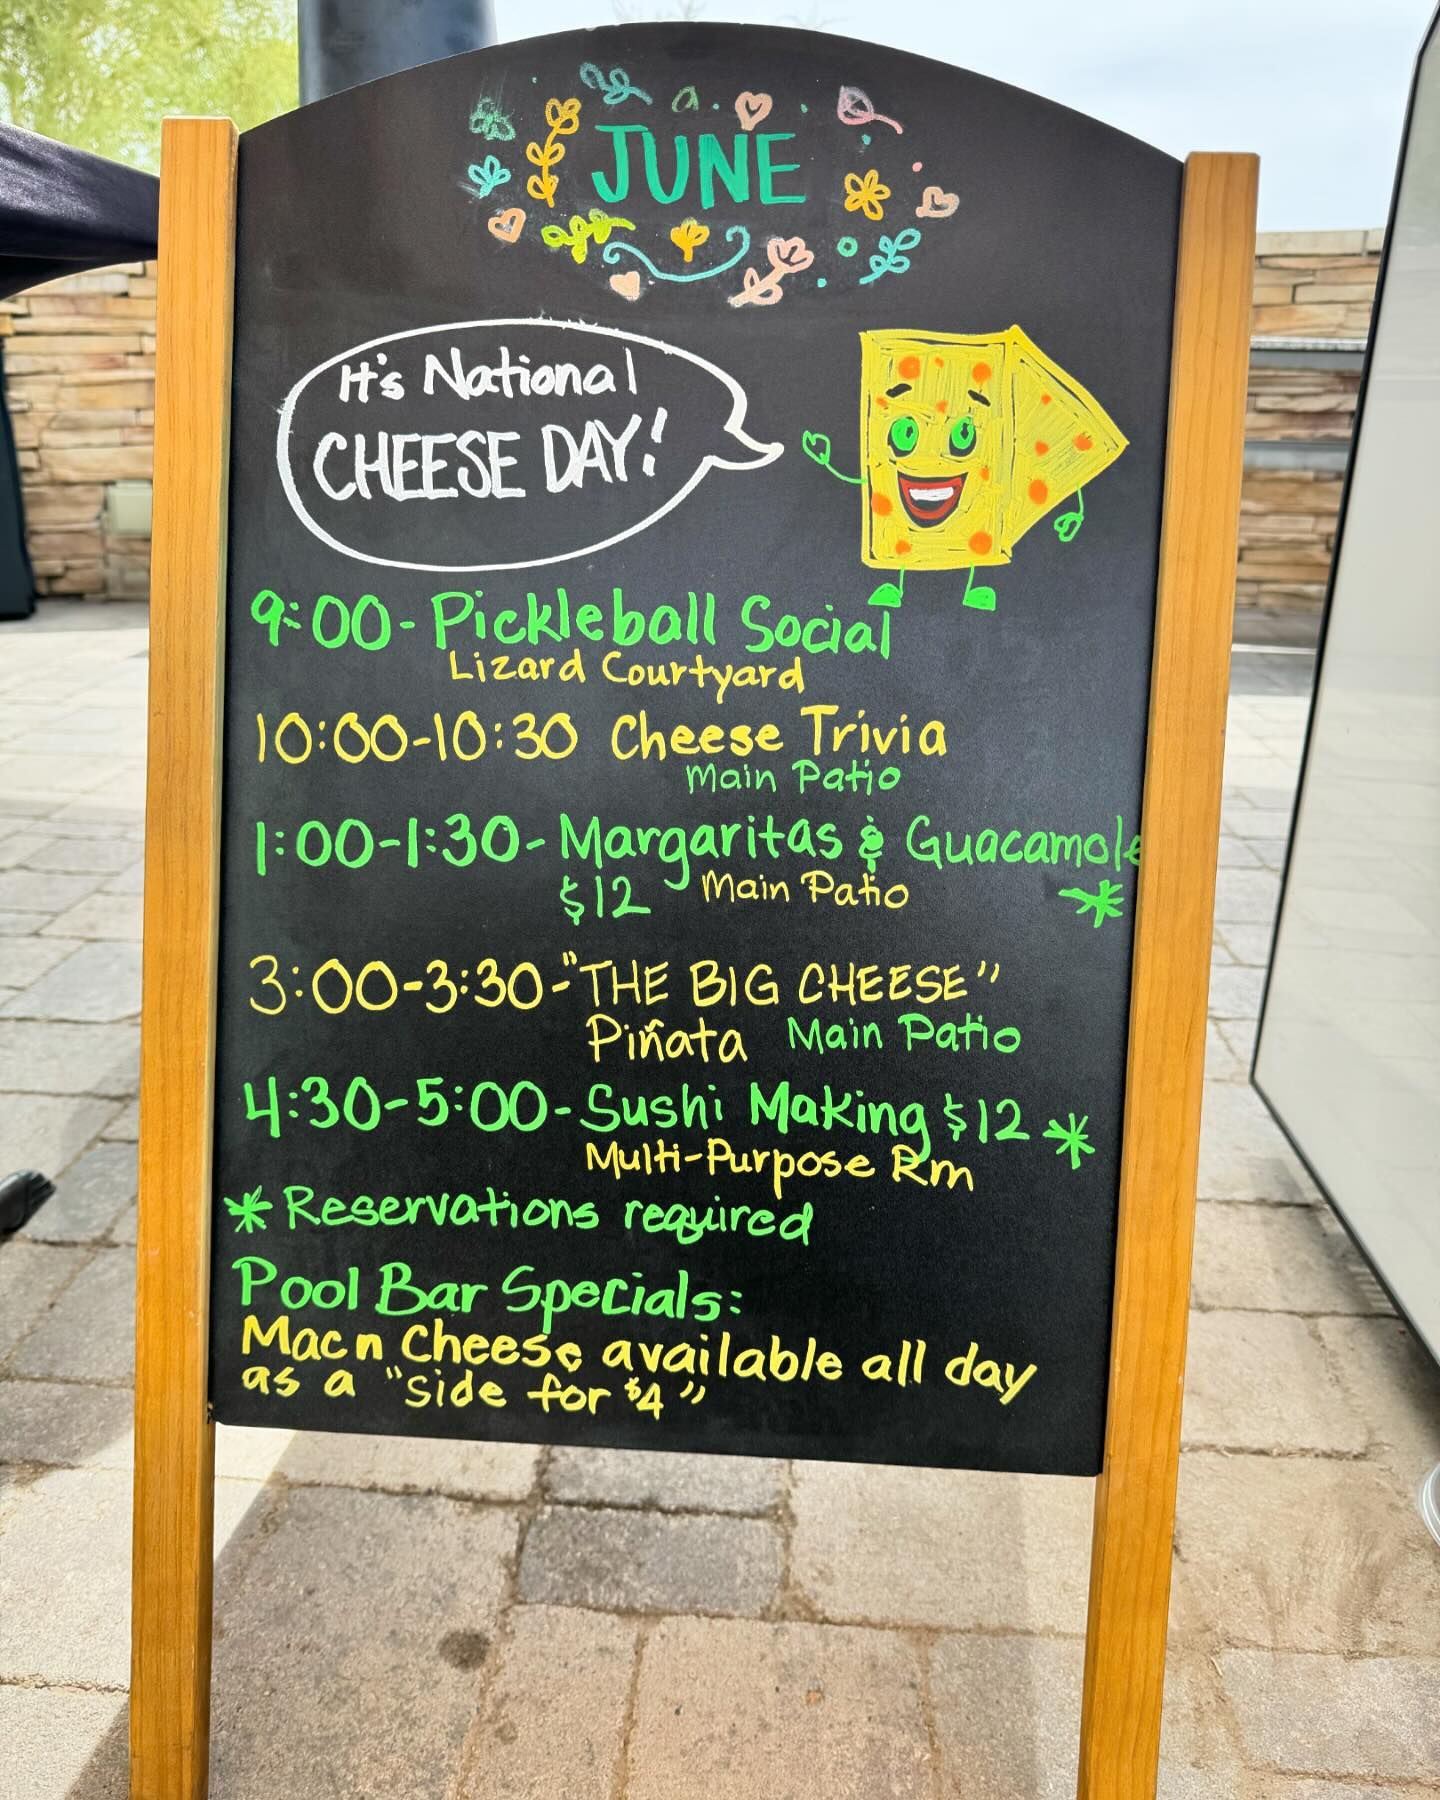 JUNE
It's National
CHEESE DAY!
9:00- Pickleball Social
Lizard Courtyard
10:00-10:30 Cheese Trivia
Main Patio
1:00-1:30- Margaritas & Guacamole
$12 Main Patio *
3:00-3:30-"THE BIG CHEESE"
Piñata Main Patio
4:30-5:00- Sushi Making $12 *
Multi-Purpose Rm
* Reservations required
Pool Bar Specials:
Mac n Cheese available all day
as a "side for $4"